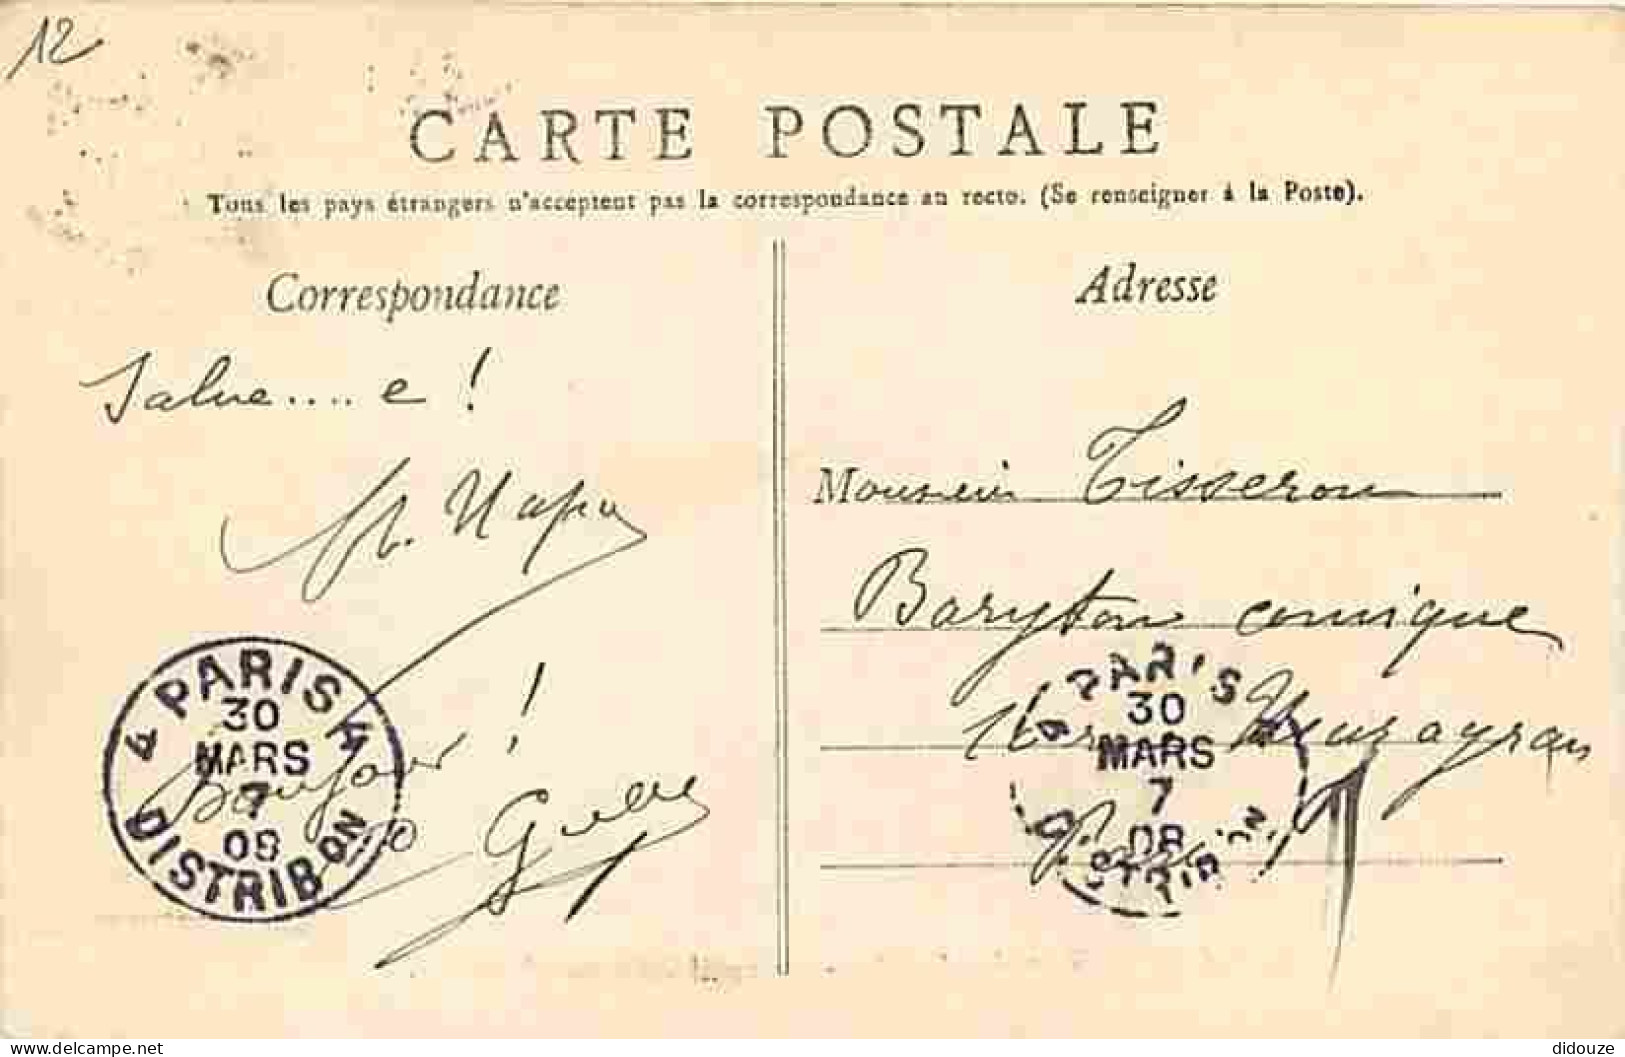 12
CARTE POSTALE
Tous les pays étrangers n'acceptent pas la correspondance au recto. (Se renseigner à la Poste).
Correspondance
Adresse
Salue....e !
Monsieur Tisseron
Baryton comique
Bonjour !
4 PARIS 4
30
MARS
7
08
DISTRIBON
PARIS
30
MARS
7
08
DISTRIBON
delcampe.net
didouze